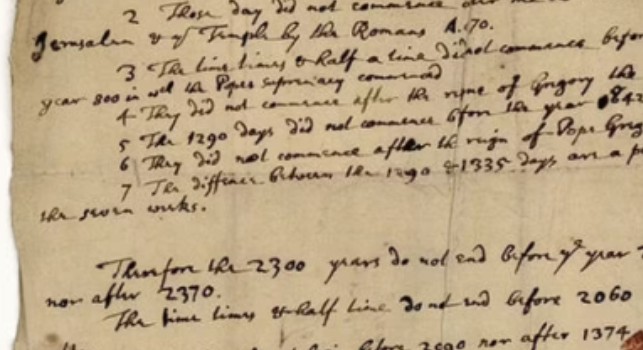 2 Those day did not commence
Jerusalem & ye Temple by the Romans A. 70.
3 The time times & half a time did not commence before
year 800 in wch the Popes supremacy commenced
4 They did not commence after the reigne of Gregory the
5 The 1290 days did not commence before the year 842
6 They did not commence after the reign of Pope Greg
7 The diffence between the 1290 & 1335 days are a p
the seven weeks.
Therefore the 2300 years do not end before ye year
nor after 2370.
The time times & half time do not end before 2060
before 2090 nor after 1374